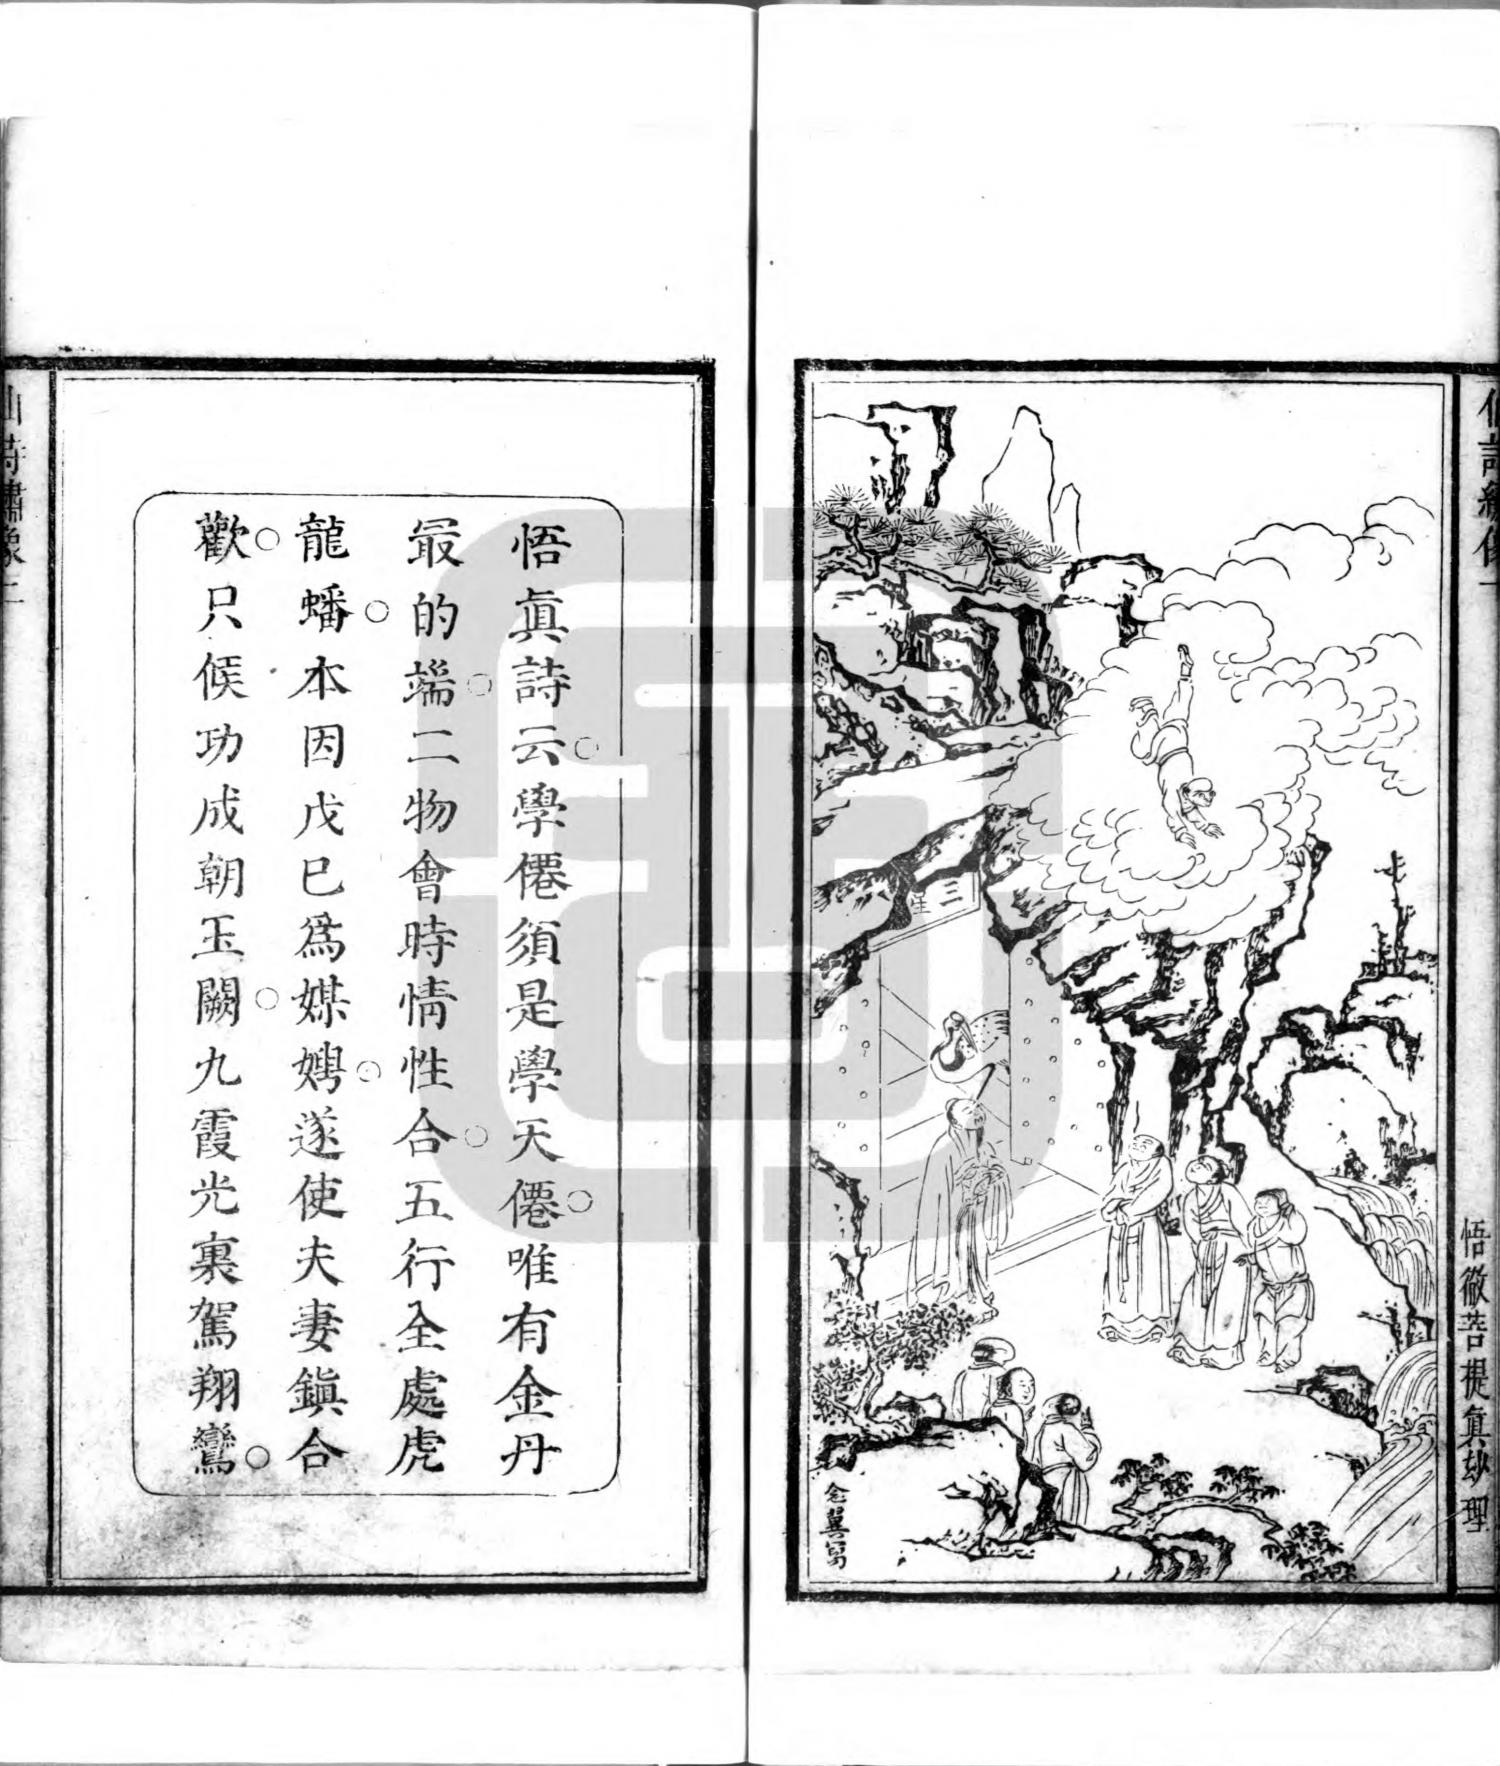 悟徹菩提真妙理
三星
念翼寫
悟眞詩云學僊須是學天僊唯有金丹
最的端二物會時情性合五行全處虎
龍蟠本因戊巳爲媒娉遂使夫妻鎭合
歡只候功成朝玉闕九霞光裏駕翔鸞